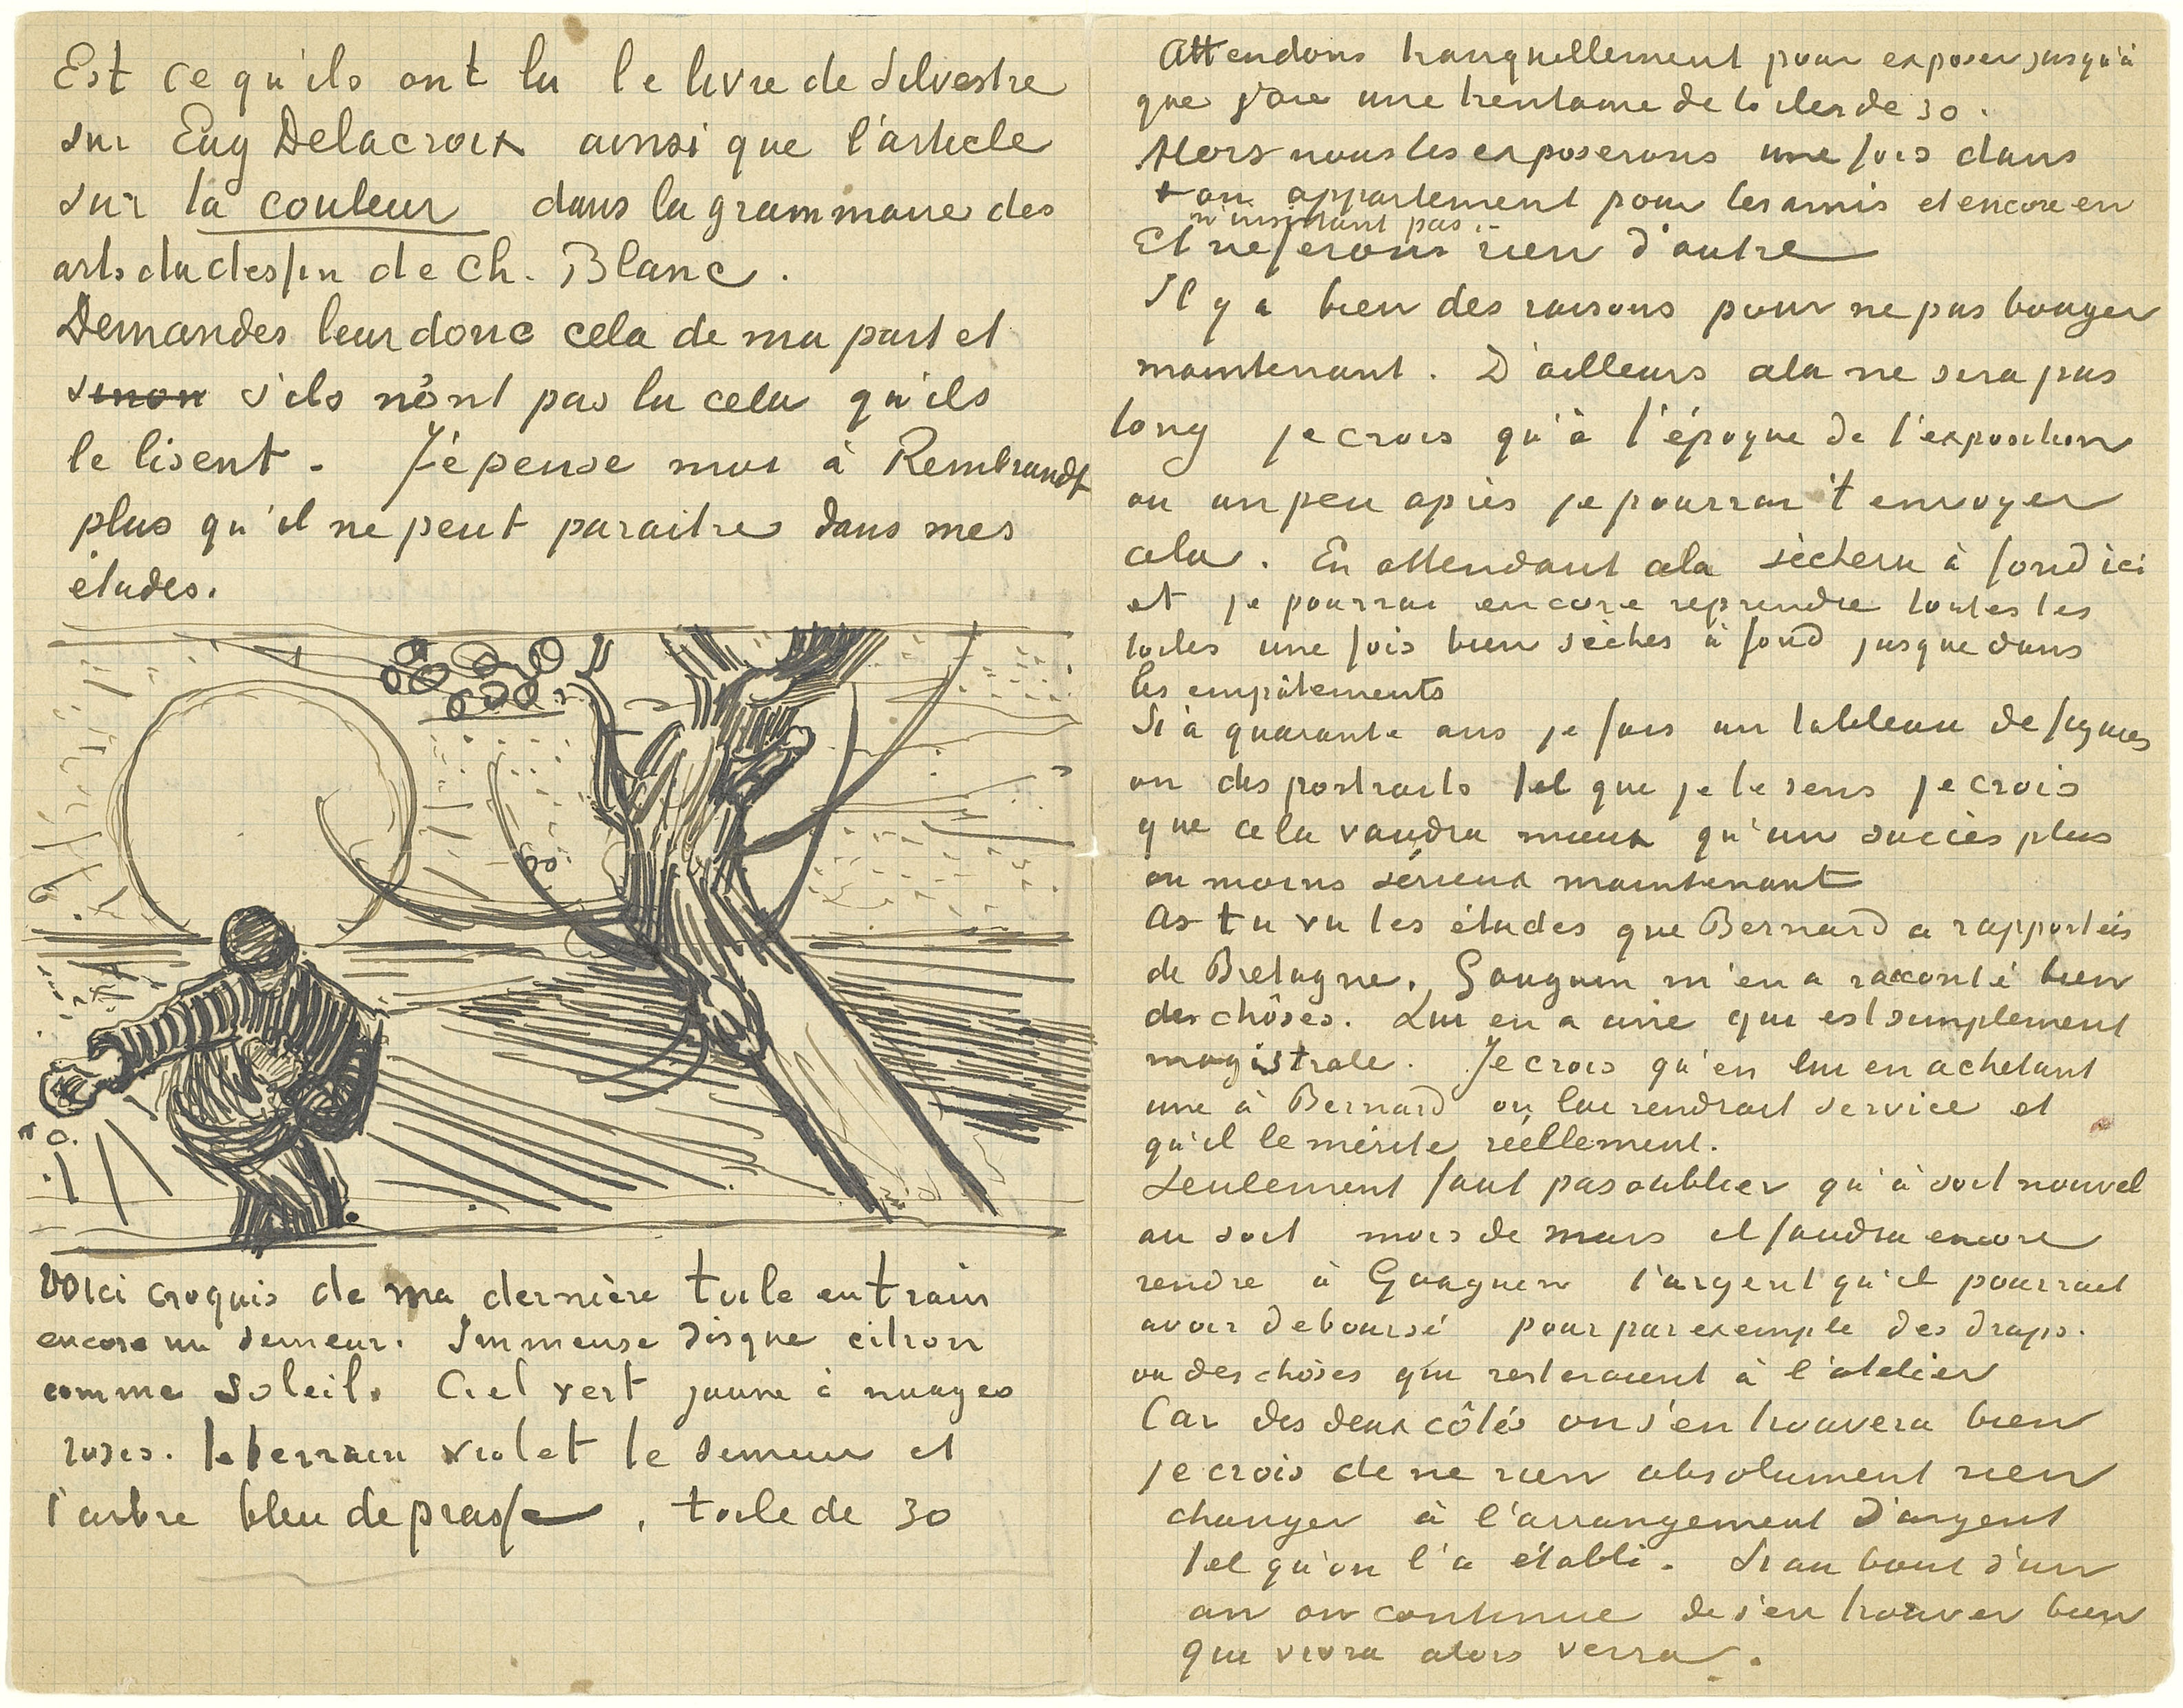 Est ce qu'ils ont lu le livre de Silvestre
sur Eug Delacroix ainsi que l'article
sur la couleur dans la grammaire des
arts du dessin de Ch. Blanc.
Demandes leur donc cela de ma part et
sinon s'ils n'ont pas lu cela qu'ils
le lisent. J'e pense moi à Rembrandt
plus qu'il ne peut paraitre dans mes
études.
Voici croquis de ma dernière toile en train
encore un semeur. Immense disque citron
comme soleil. Ciel vert jaune à nuages
roses. le terrain violet le semeur et
l'arbre bleu de prusse, toile de 30
Attendons tranquillement pour exposer jusqu'à
que j'aie une trentaine de toiles de 30.
Alors nous les exposerons une fois dans
ton appartement pour les amis et encore en
n'insistant pas.
Et ne ferons rien d'autre
Il y a bien des raisons pour ne pas bouger
maintenant. D'ailleurs cela ne sera pas
long je crois qu'à l'époque de l'exposition
ou un peu après je pourrai t'envoyer
cela. En attendant cela sèchera à fond ici
et je pourrai encore reprendre toutes les
toiles une fois bien sèches à fond jusque dans
les empâtements
Si à quarante ans je fais un tableau de figures
ou des portraits tel que je le sens je crois
que cela vaudra mieux qu'un succès plus
ou moins sérieux maintenant
As tu vu les études que Bernard a rapportées
de Bretagne. Gauguin m'en a raconté bien
des chôses. Lui en a une qui est simplement
magistrale. Je crois qu'en lui en achetant
une à Bernard on lui rendrait service et
qu'il le mérite réellement.
Seulement faut pas oublier qu'à soit nouvel
an soit mois de mars il faudra encore
rendre à Gauguin l'argent qu'il pourrait
avoir deboursé pour par exemple des draps.
ou des chôses qui resteraient à l'atelier
Car des deux côtés on s'en trouvera bien
je crois de ne rien absolument rien
changer à l'arrangement d'argent
tel qu'on l'a établi. Si au bout d'un
an on continue de s'en trouver bien
qui vivra alors verra.